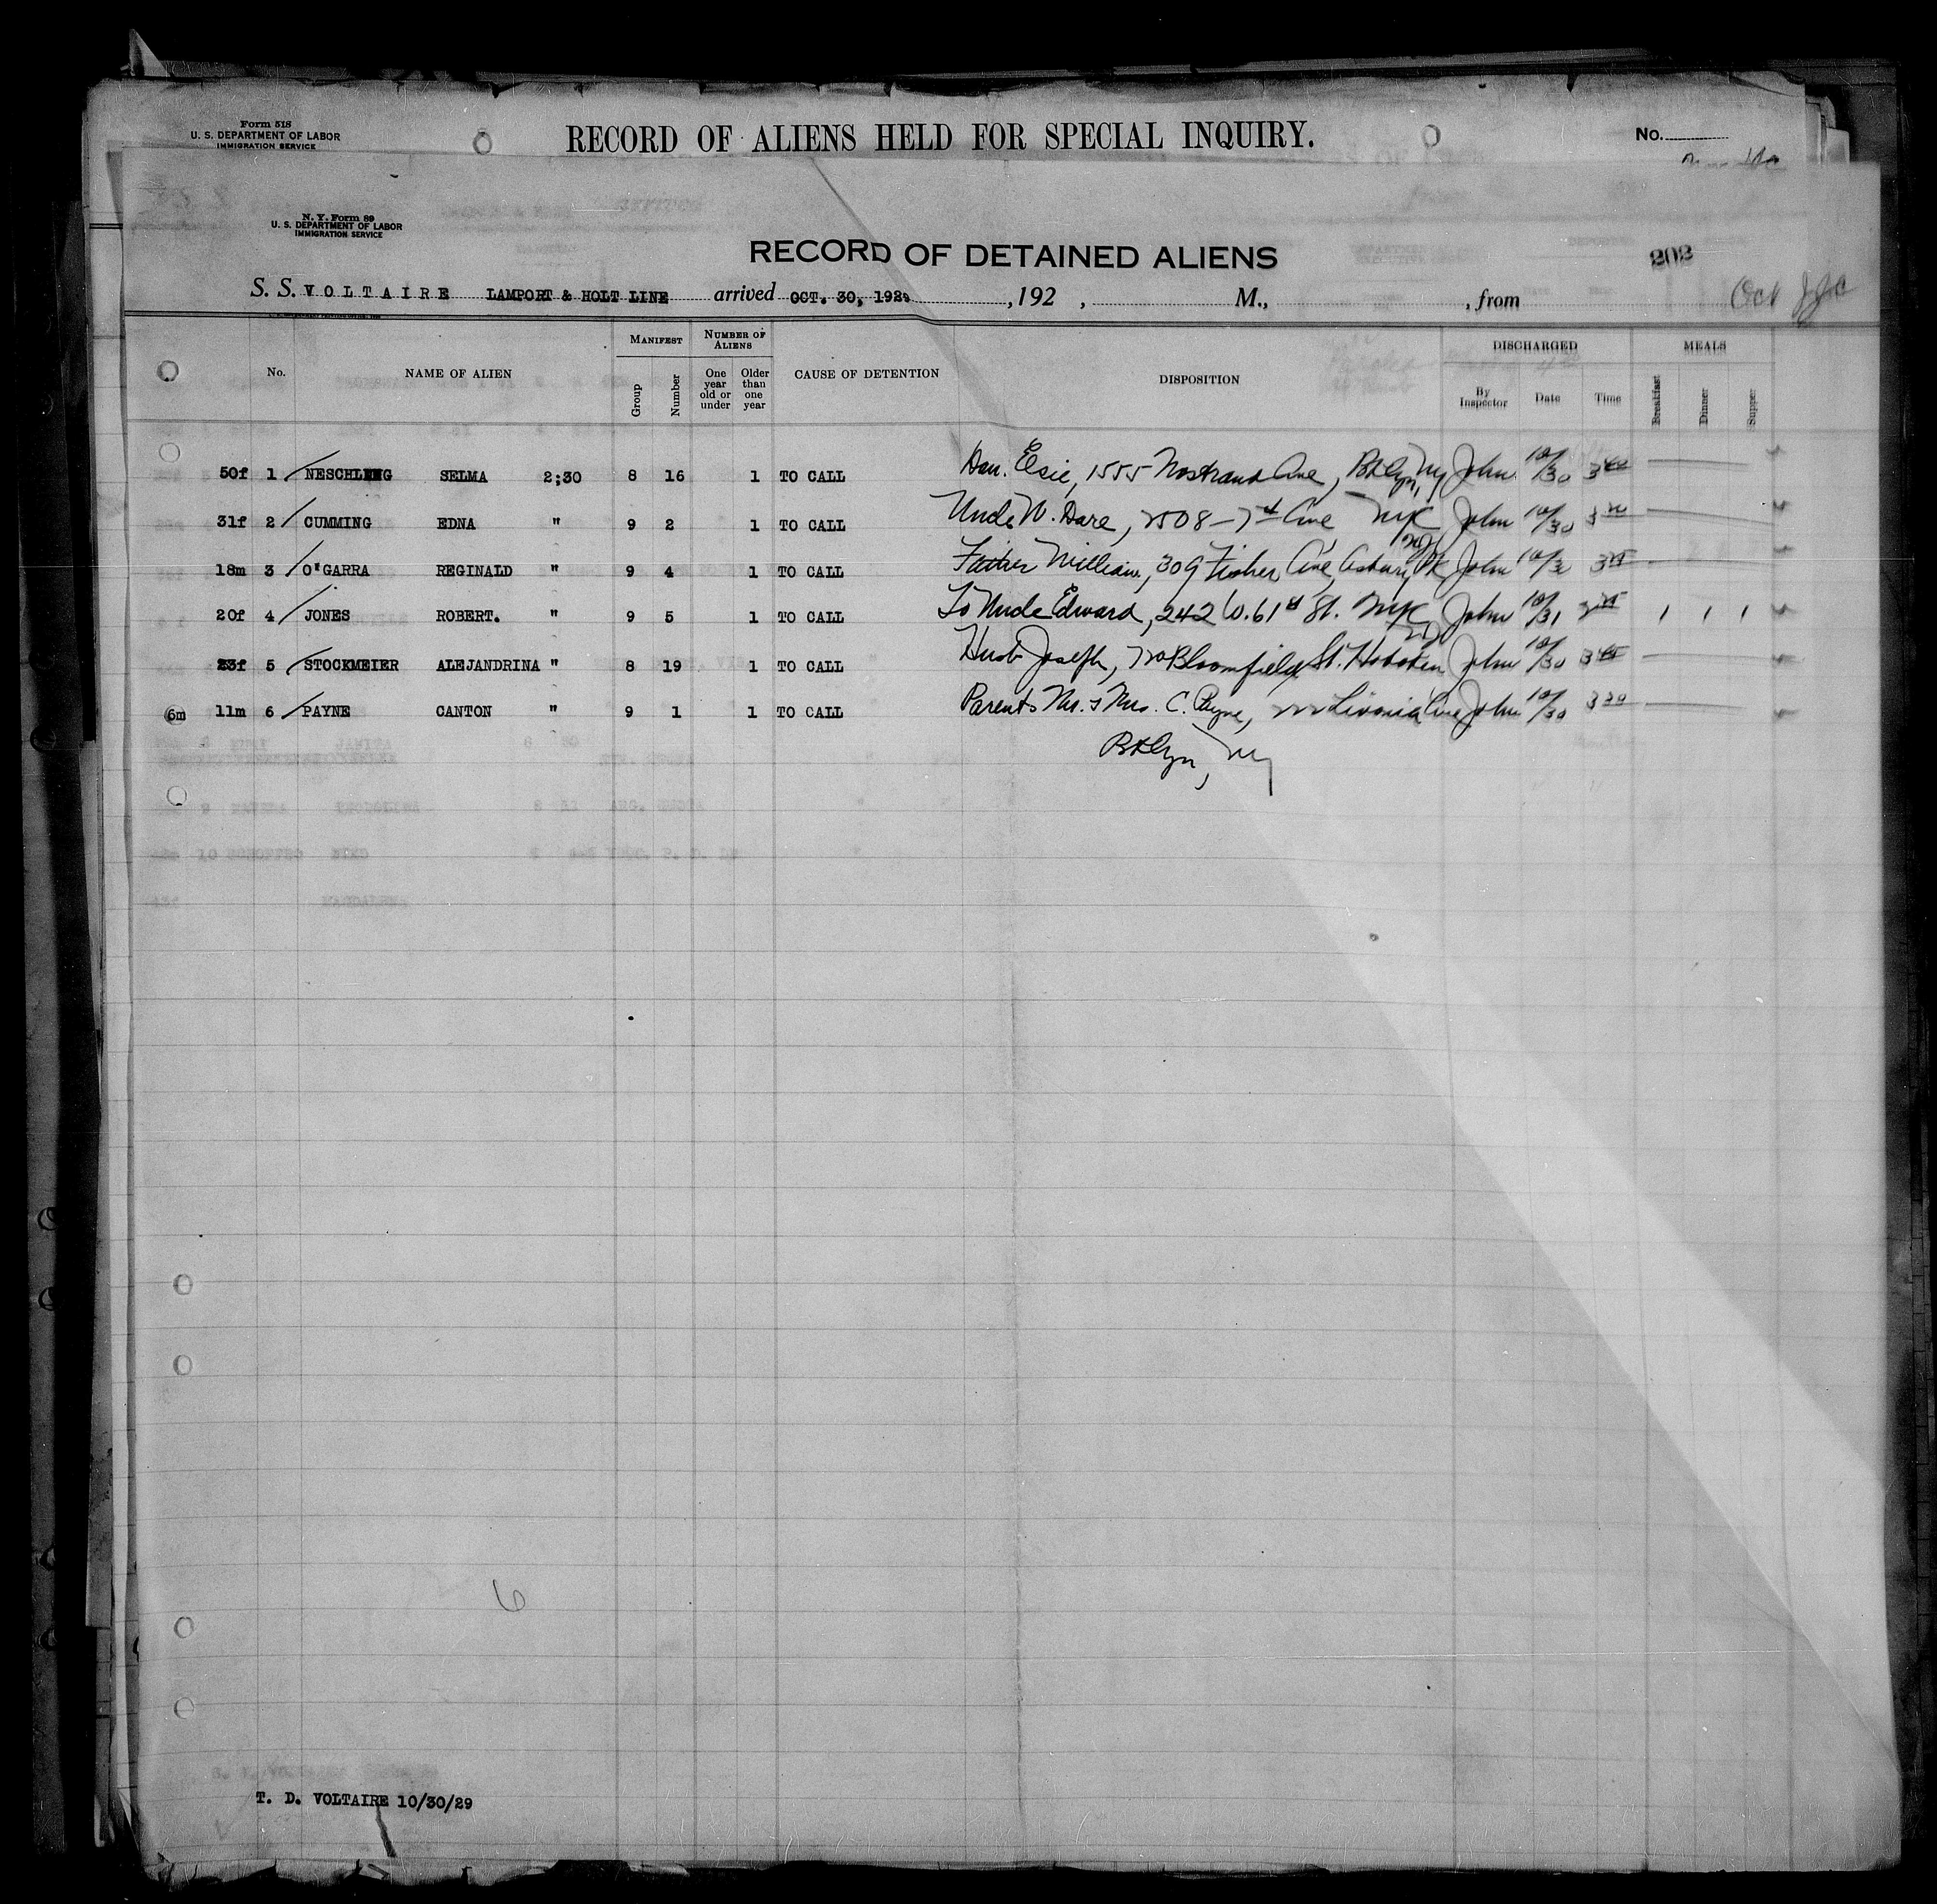 Form 518
U. S. DEPARTMENT OF LABOR
IMMIGRATION SERVICE
RECORD OF ALIENS HELD FOR SPECIAL INQUIRY.
No.
N. Y. Form 89
U. S. DEPARTMENT OF LABOR
IMMIGRATION SERVICE
RECORD OF DETAINED ALIENS
202
S. S. VOLTAIRE LAMPORT & HOLT LINE arrived OCT. 30, 1929 , 192 , M., , from Oct
MANIFEST NUMBER OF ALIENS DISCHARGED MEALS
No. NAME OF ALIEN Group Number One year old or under Older than one year CAUSE OF DETENTION DISPOSITION By Inspector Date Time Breakfast Dinner Supper
50f 1 NESCHLING SELMA 2;30 8 16 1 TO CALL Elsie, 1555 Nostrand Ave, Bklyn, Ny John 10/30 3
31f 2 CUMMING EDNA " 9 2 1 TO CALL Uncle W. Dare, 2508 - 7th Ave NYC John 10/30 3
18m 3 O'GARRA REGINALD " 9 4 1 TO CALL Father William, 309 Fisher Ave, Asbury Pk NJ John 10/30 3
20f 4 JONES ROBERT. " 9 5 1 TO CALL To Uncle Edward, 242 W. 61st St. NYC John 10/31 1 1 1
23f 5 STOCKMEIER ALEJANDRINA " 8 19 1 TO CALL Husb Joseph, 720 Bloomfield St. Hoboken NJ John 10/30 3
6m 11m 6 PAYNE CANTON " 9 1 1 TO CALL Parents Mr. & Mrs. C. Payne, Livonia Ave John 10/30 3 30
Bklyn, Ny
6
T. D. VOLTAIRE 10/30/29